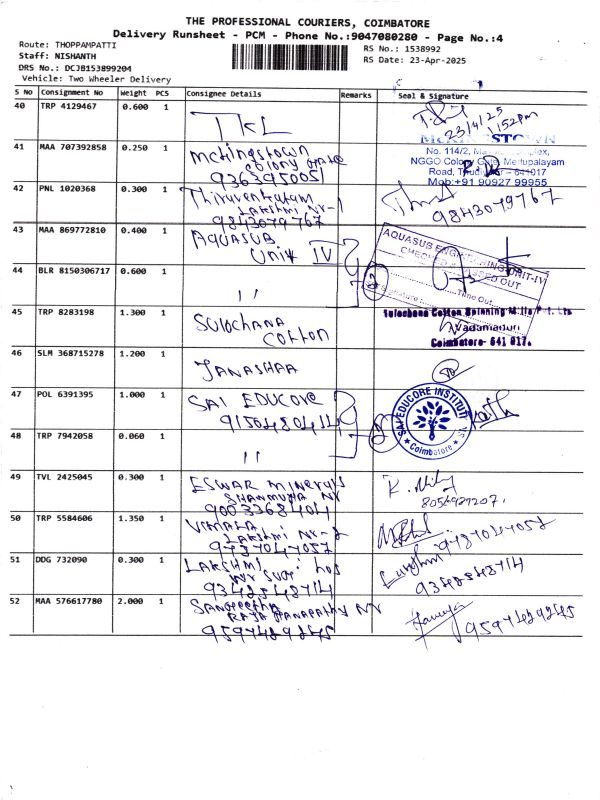 THE PROFESSIONAL COURIERS, COIMBATORE
Delivery Runsheet - PCM - Phone No.:9047080280 - Page No.:4
Route: THOPPAMPATTI
Staff: NISHANTH
DRS No.: DCJB153899204
Vehicle: Two Wheeler Delivery
RS No.: 1538992
RS Date: 23-Apr-2025
S No Consignment No Weight PCS Consignee Details Remarks Seal & Signature
40 TRP 4129467 0.600 1 TKL
23/4/25
1:52pm
41 MAA 707392858 0.250 1 McKingstown
Colony Gate
9363950051
McKINGSTOWN
No. 114/2,
NGGO Colony Gate, Mettupalayam
Road, 641017
Mob:+91 90927 99955
42 PNL 1020368 0.300 1 Thiruvenkatam
Lakshmi Nr-1
9843079767
9843079767
43 MAA 869772810 0.400 1 AQUASUB
Unit IV
AQUASUB ENGINEERING UNIT-IV
44 BLR 8150306717 0.600 1 "
Time Out
45 TRP 8283198 1.300 1 SULOCHANA
COTTON
Sulochana Cotton Spinning Mills P. Ltd
Vadamaduri
Coimbatore- 641 017.
46 SLM 368715278 1.200 1 JANASHAA
47 POL 6391395 1.000 1 SAI EDUCORE
9150480414
SAI EDUCORE INSTITUTIONS
Coimbatore
48 TRP 7942058 0.060 1 "
49 TVL 2425045 0.300 1 ESWAR Minerals
SHANMUGA NR
9003368404
8056929207.
50 TRP 5584606 1.350 1 VIMALA
LAKSHMI Nr-2
9787047057
9787047057
51 DDG 732090 0.300 1 LAKSHMI
9342548714
9342548714
52 MAA 576617780 2.000 1 Sangeetha
RAJA GANAPATHY NR
9597429245
9597429245